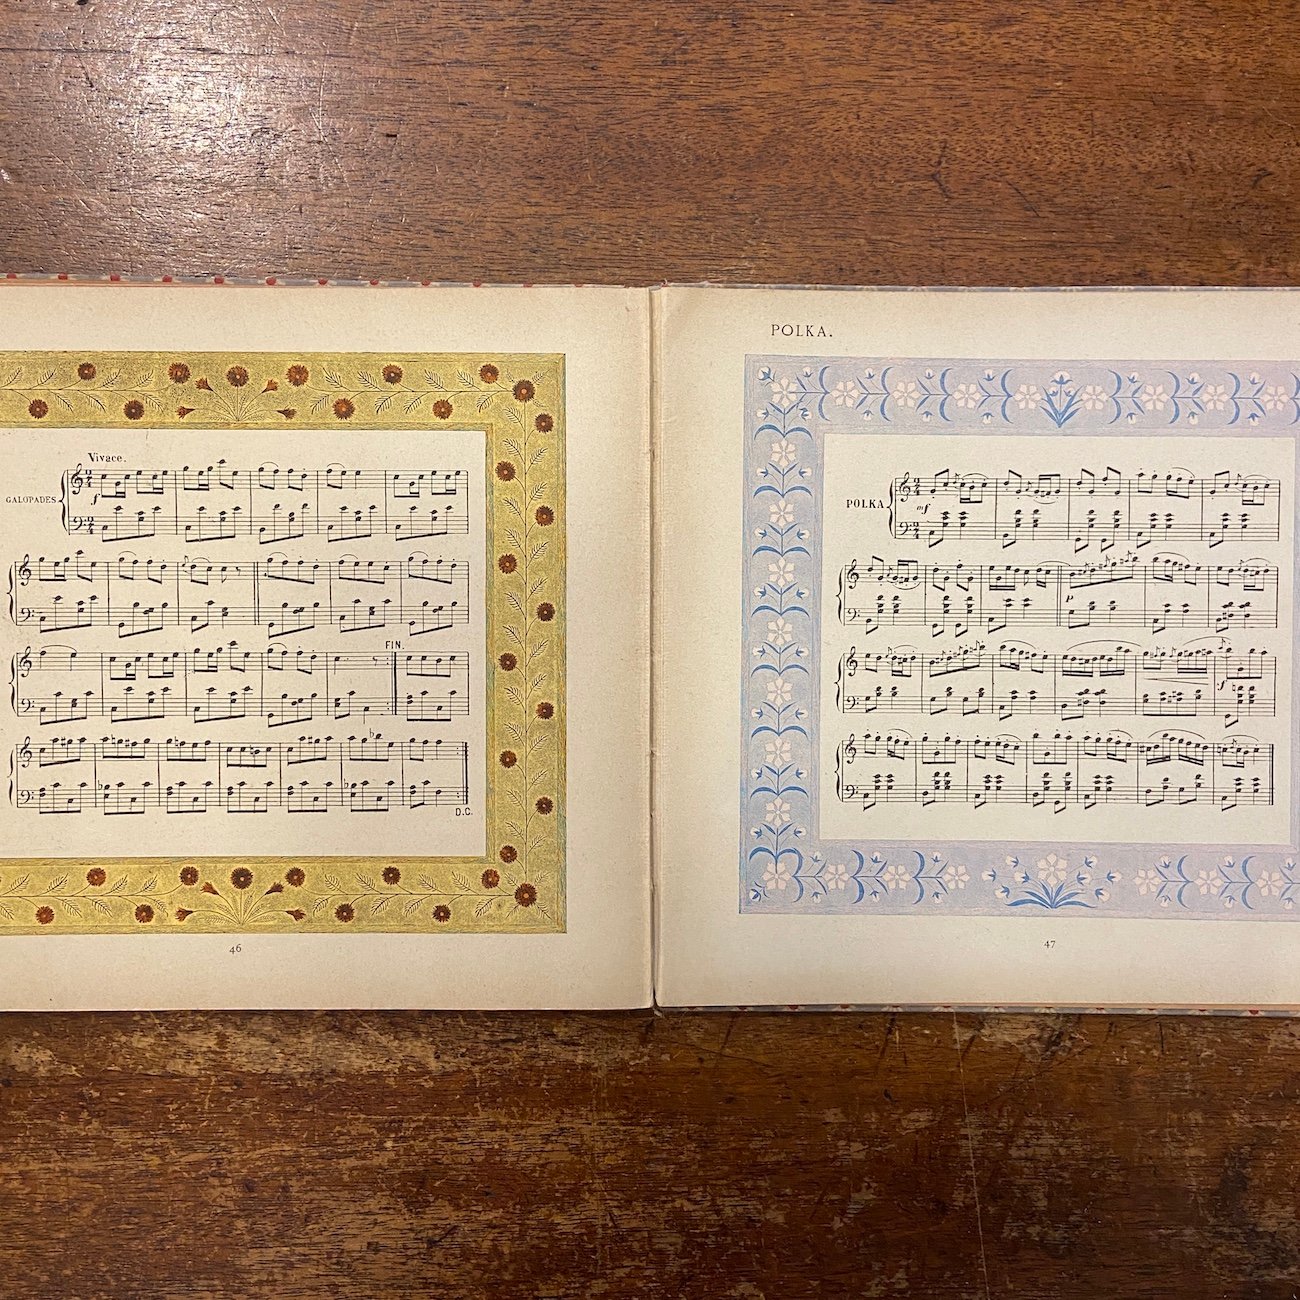 Vivace.
GALOPADES
f
FIN.
D.C.
46
POLKA.
POLKA
mf
p
f
47